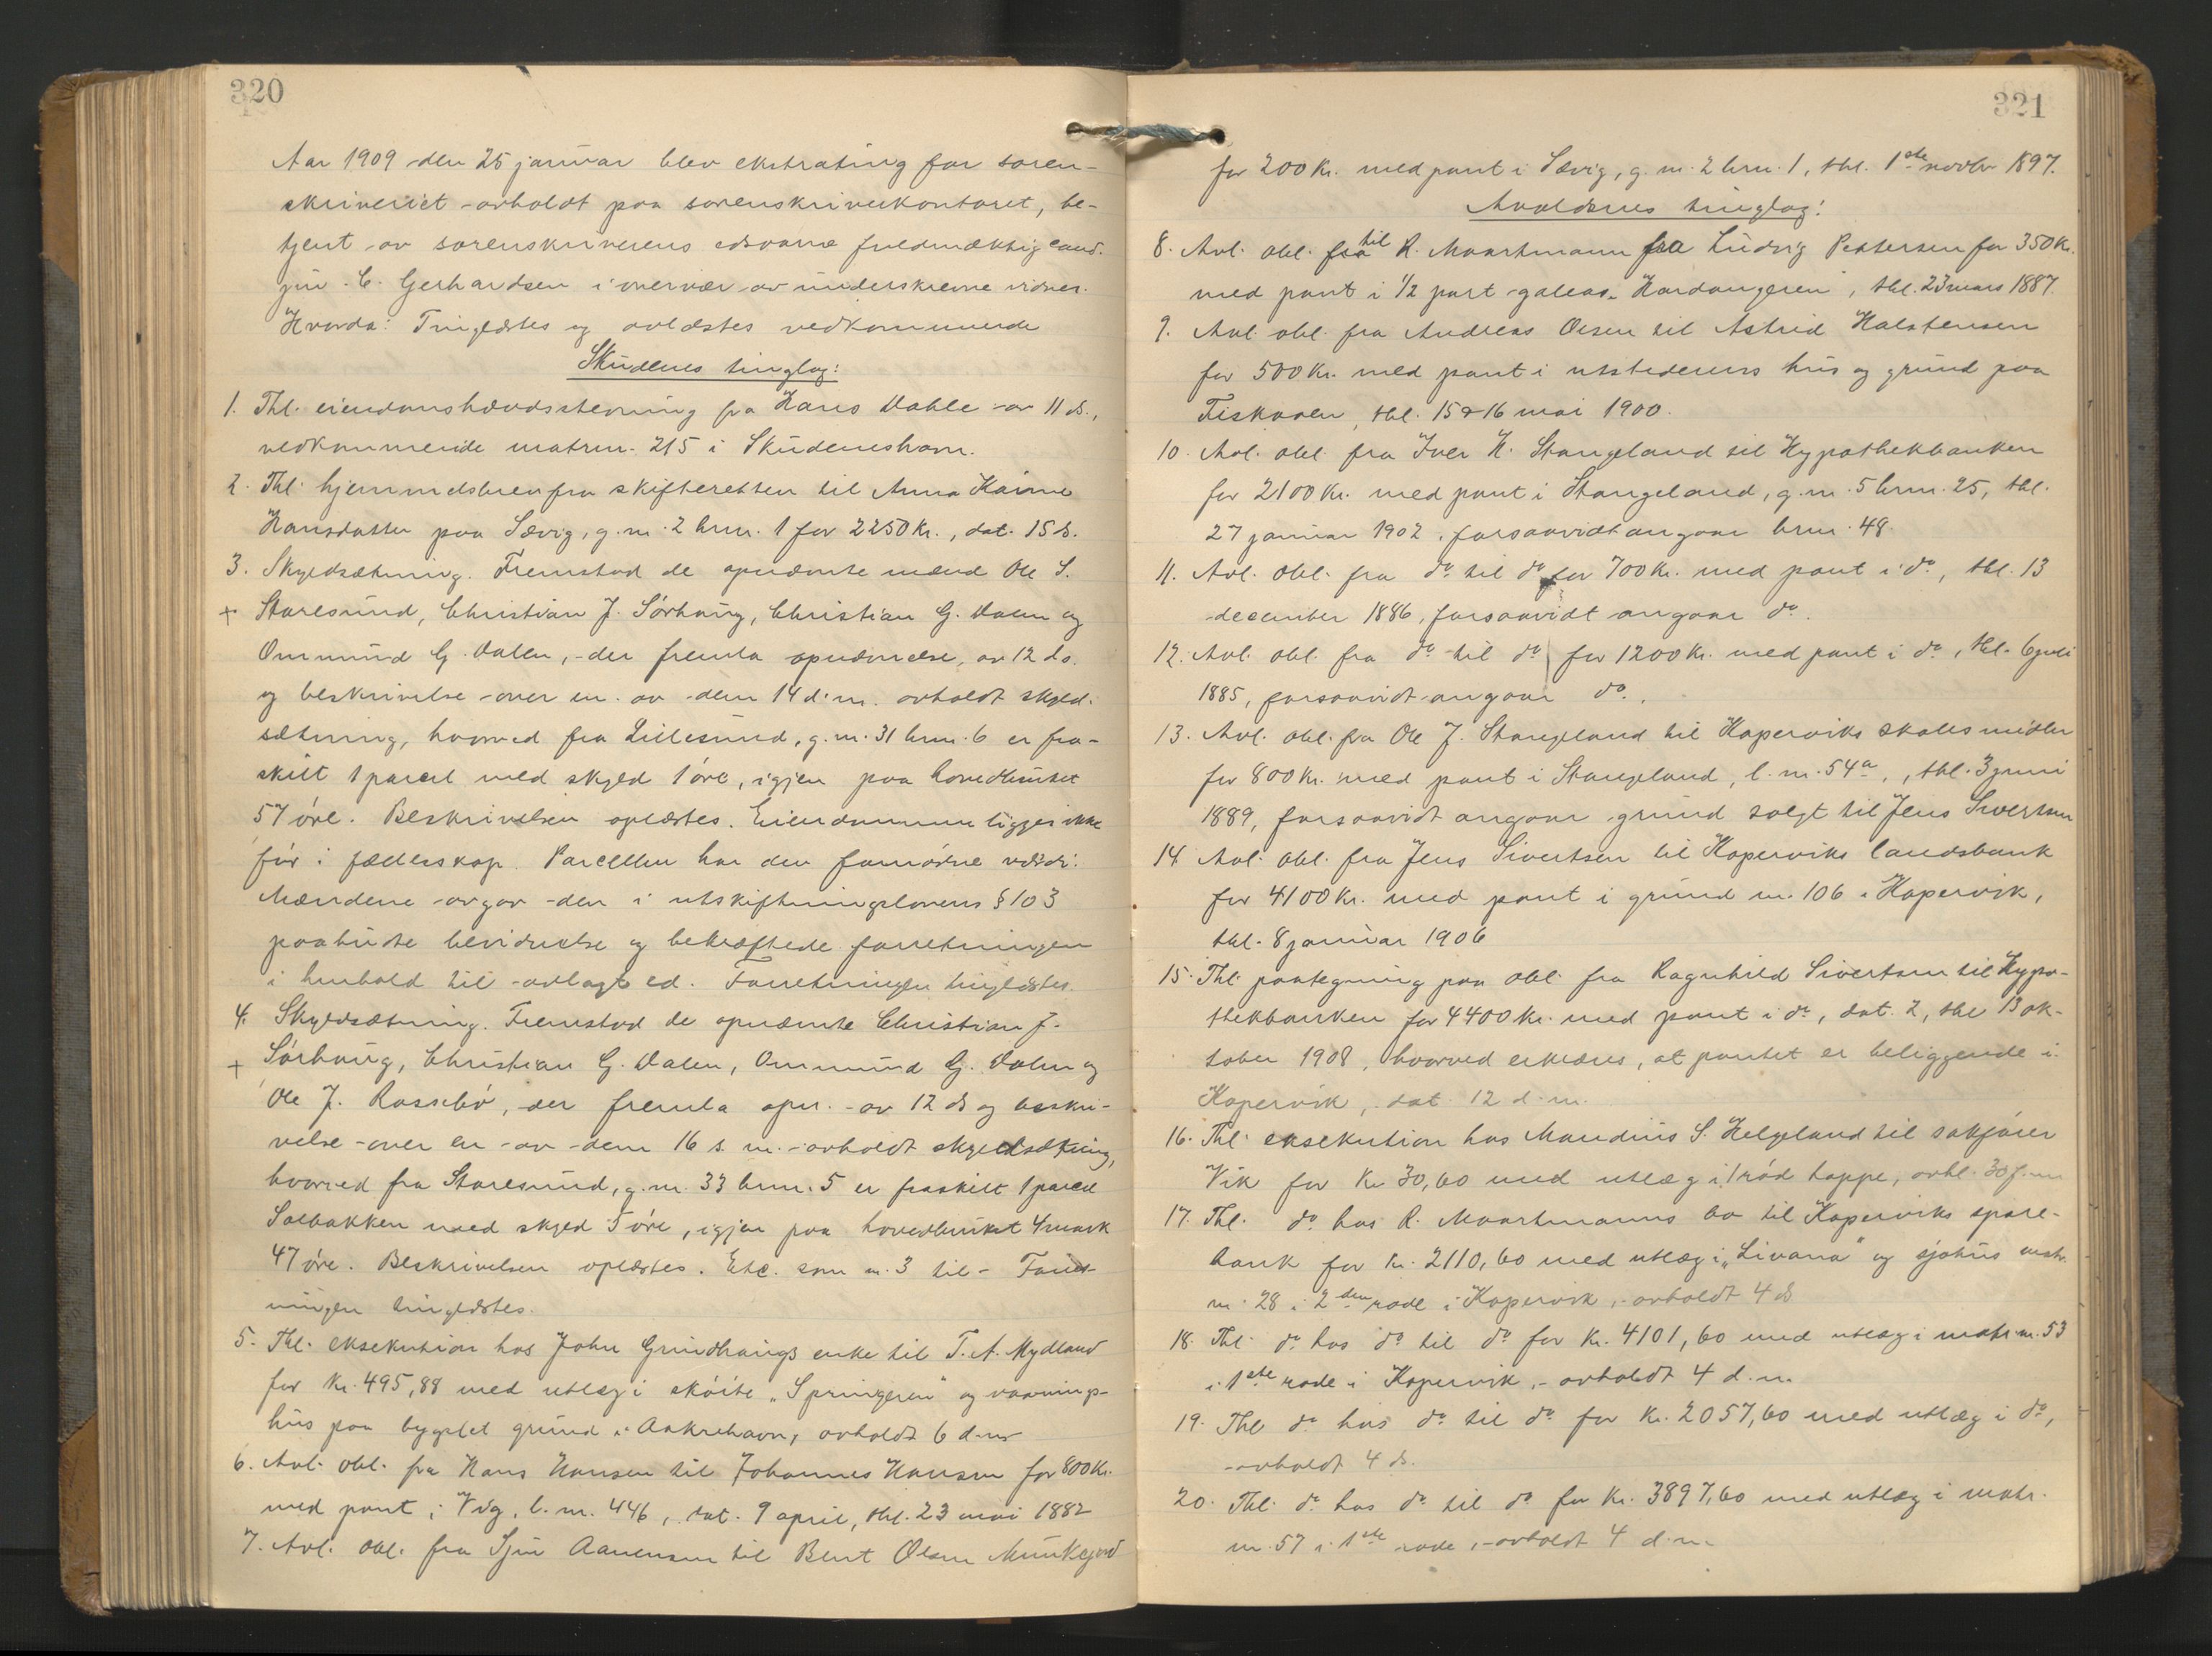 320
Aar 1909 den 25 januar blev ekstrating for soren-
skriveriet avholdt paa sorenskriverkontoret, be-
tjent av sorenskriverens edsvorne fuldmæktig cand.
jur. C. Gerhardsen i overvær av underskrevne vidner.
Hvorda: Tinglæstes og avlæstes vedkommende
Skudenes tinglag:
1. Thl. eiendomshævdsstevning fra Hans Dahle av 11 ds.,
vedkommende matrnr. 215 i Skudeneshavn.
2. Thl. hjemmelsbrev fra skifteretten til Anna Karine
Hansdatter paa Sævig, g. nr. 2 brnr. 1 for 2250 Kr., dat. 15 ds.
3. Skyldsætning. Fremstod de opnævnte mænd Ole S.
+ Storesund, Christian J. Sörhaug, Christian G. Dalen og
Ommund G. Dalen, der fremla opnævnelse av 12 ds.
og beskrivelse over en av dem 14 d. m. avholdt skyld-
sætning, hvorved fra Lillesund, g. nr. 31 brnr. 6 er fra-
skilt 1 parcel med skyld 1 öre, igjen paa hovedbruket
57 öre. Beskrivelsen oplæstes. Eiendommene ligger ikke
för i fælleskap. Parcellen har den fornödne værdi.
Mændene avgav den i utskiftningslovens § 103
paabudte bevidnelse og bekræftede forretningen
i henhold til avlagt ed. Forretningen tinglæstes.
4. Skyldsætning. Fremstod de opnævnte Christian J.
+ Sörhaug, Christian G. Dalen, Ommund G. Dalen og
Ole J. Rossebö, der fremla opn. av 12 ds og beskri-
velse over en av dem 16 s. m. avholdt skyldsætning,
hvorved fra Storesund, g. nr. 33 brnr. 5 er fraskilt 1 parcel
Solbakken med skyld 5 öre, igjen paa hovedbruket 4 mark
47 öre. Beskrivelsen oplæstes. Etc. som nr. 3 til – Forret-
ningen tinglæstes.
5. Thl. eksekution hos John Grindhaugs enke til T. A. Mydland
for Kr. 495,88 med utlæg i sköite "Springeren" og vaanings-
hus paa bygslet grund i Aakrehavn, avholdt 6 d. m.
6. Avl. obl. fra Hans Hansen til Johannes Hansen for 800 Kr.
med pant i Vig, l. nr. 446, dat. 9 april, thl. 23 mai 1882
7. Avl. obl. fra Sjur Aanensen til Bent Olsen Munkejord
321
for 200 Kr. med pant i Sævig, g. nr. 2 brnr. 1, thl. 1ste novbr 1897.
Avaldsnes tinglag:
8. Avl. obl. fra til R. Maartmann fra Ludvig Pettersen for 350 Kr.
med pant i 1/2 part galeas "Hardangeren", thl. 23 mars 1887.
9. Avl. obl. fra Andreas Olsen til Astrid Halstensen
for 500 Kr. med pant i utstederens hus og grund paa
Fiskaaen, thl. 15 & 16 mai 1900.
10. Avl. obl. fra Iver K. Stangeland til Hypothekbanken
for 2100 Kr. med pant i Stangeland, g. nr. 5 brnr. 25, thl.
27 januar 1902, forsaavidt angaar brnr. 48.
11. Avl. obl. fra do til do for 700 Kr. med pant i do, thl. 13
december 1886, forsaavidt angaar do.
12. Avl. obl. fra do til do for 1200 Kr. med pant i do, thl. 6 juli
1885, forsaavidt angaar do.
13. Avl. obl. fra Ole J. Stangeland til Koperviks skoles midler
for 800 Kr. med pant i Stangeland, l. nr. 54a, thl. 3 juni
1889, forsaavidt angaar grund solgt til Jens Sivertsen
14. Avl. obl. fra Jens Sivertsen til Koperviks landsbank
for 4100 Kr. med pant i grund nr. 106 i Kopervik,
thl. 8 januar 1906
15. Thl. paategning paa obl. fra Ragnhild Sivertsen til Hypo-
thekbanken for 4400 Kr. med pant i do, dat. 2, thl 13 ok-
tober 1908, hvorved erklæres, at pantet er beliggende i
Kopervik, dat. 12 d. m.
16. Thl. eksekution hos Maudius S. Helgeland til sakförer
Vik for Kr 30,60 med utlæg i 1 röd hoppe, avhl. 30 f. m
17. Thl. do hos R. Maartmanns bo til Koperviks spare-
bank for Kr. 2110,60 med utlæg i "Livana" og sjøhus matr.
nr. 28 i 2den rode i Kopervik, avholdt 4 ds
18. Thl. do hos do til do for Kr. 4101,60 med utlæg i matr. nr. 53
i 1ste rode i Kopervik, avholdt 4 d. m.
19. Thl do hos do til do for Kr. 2057,60 med utlæg i do,
avholdt 4 ds.
20. Thl. do hos do til do for Kr. 3897,60 med utlæg i matr.
nr. 57 i 1ste rode, avholdt 4 d. m.